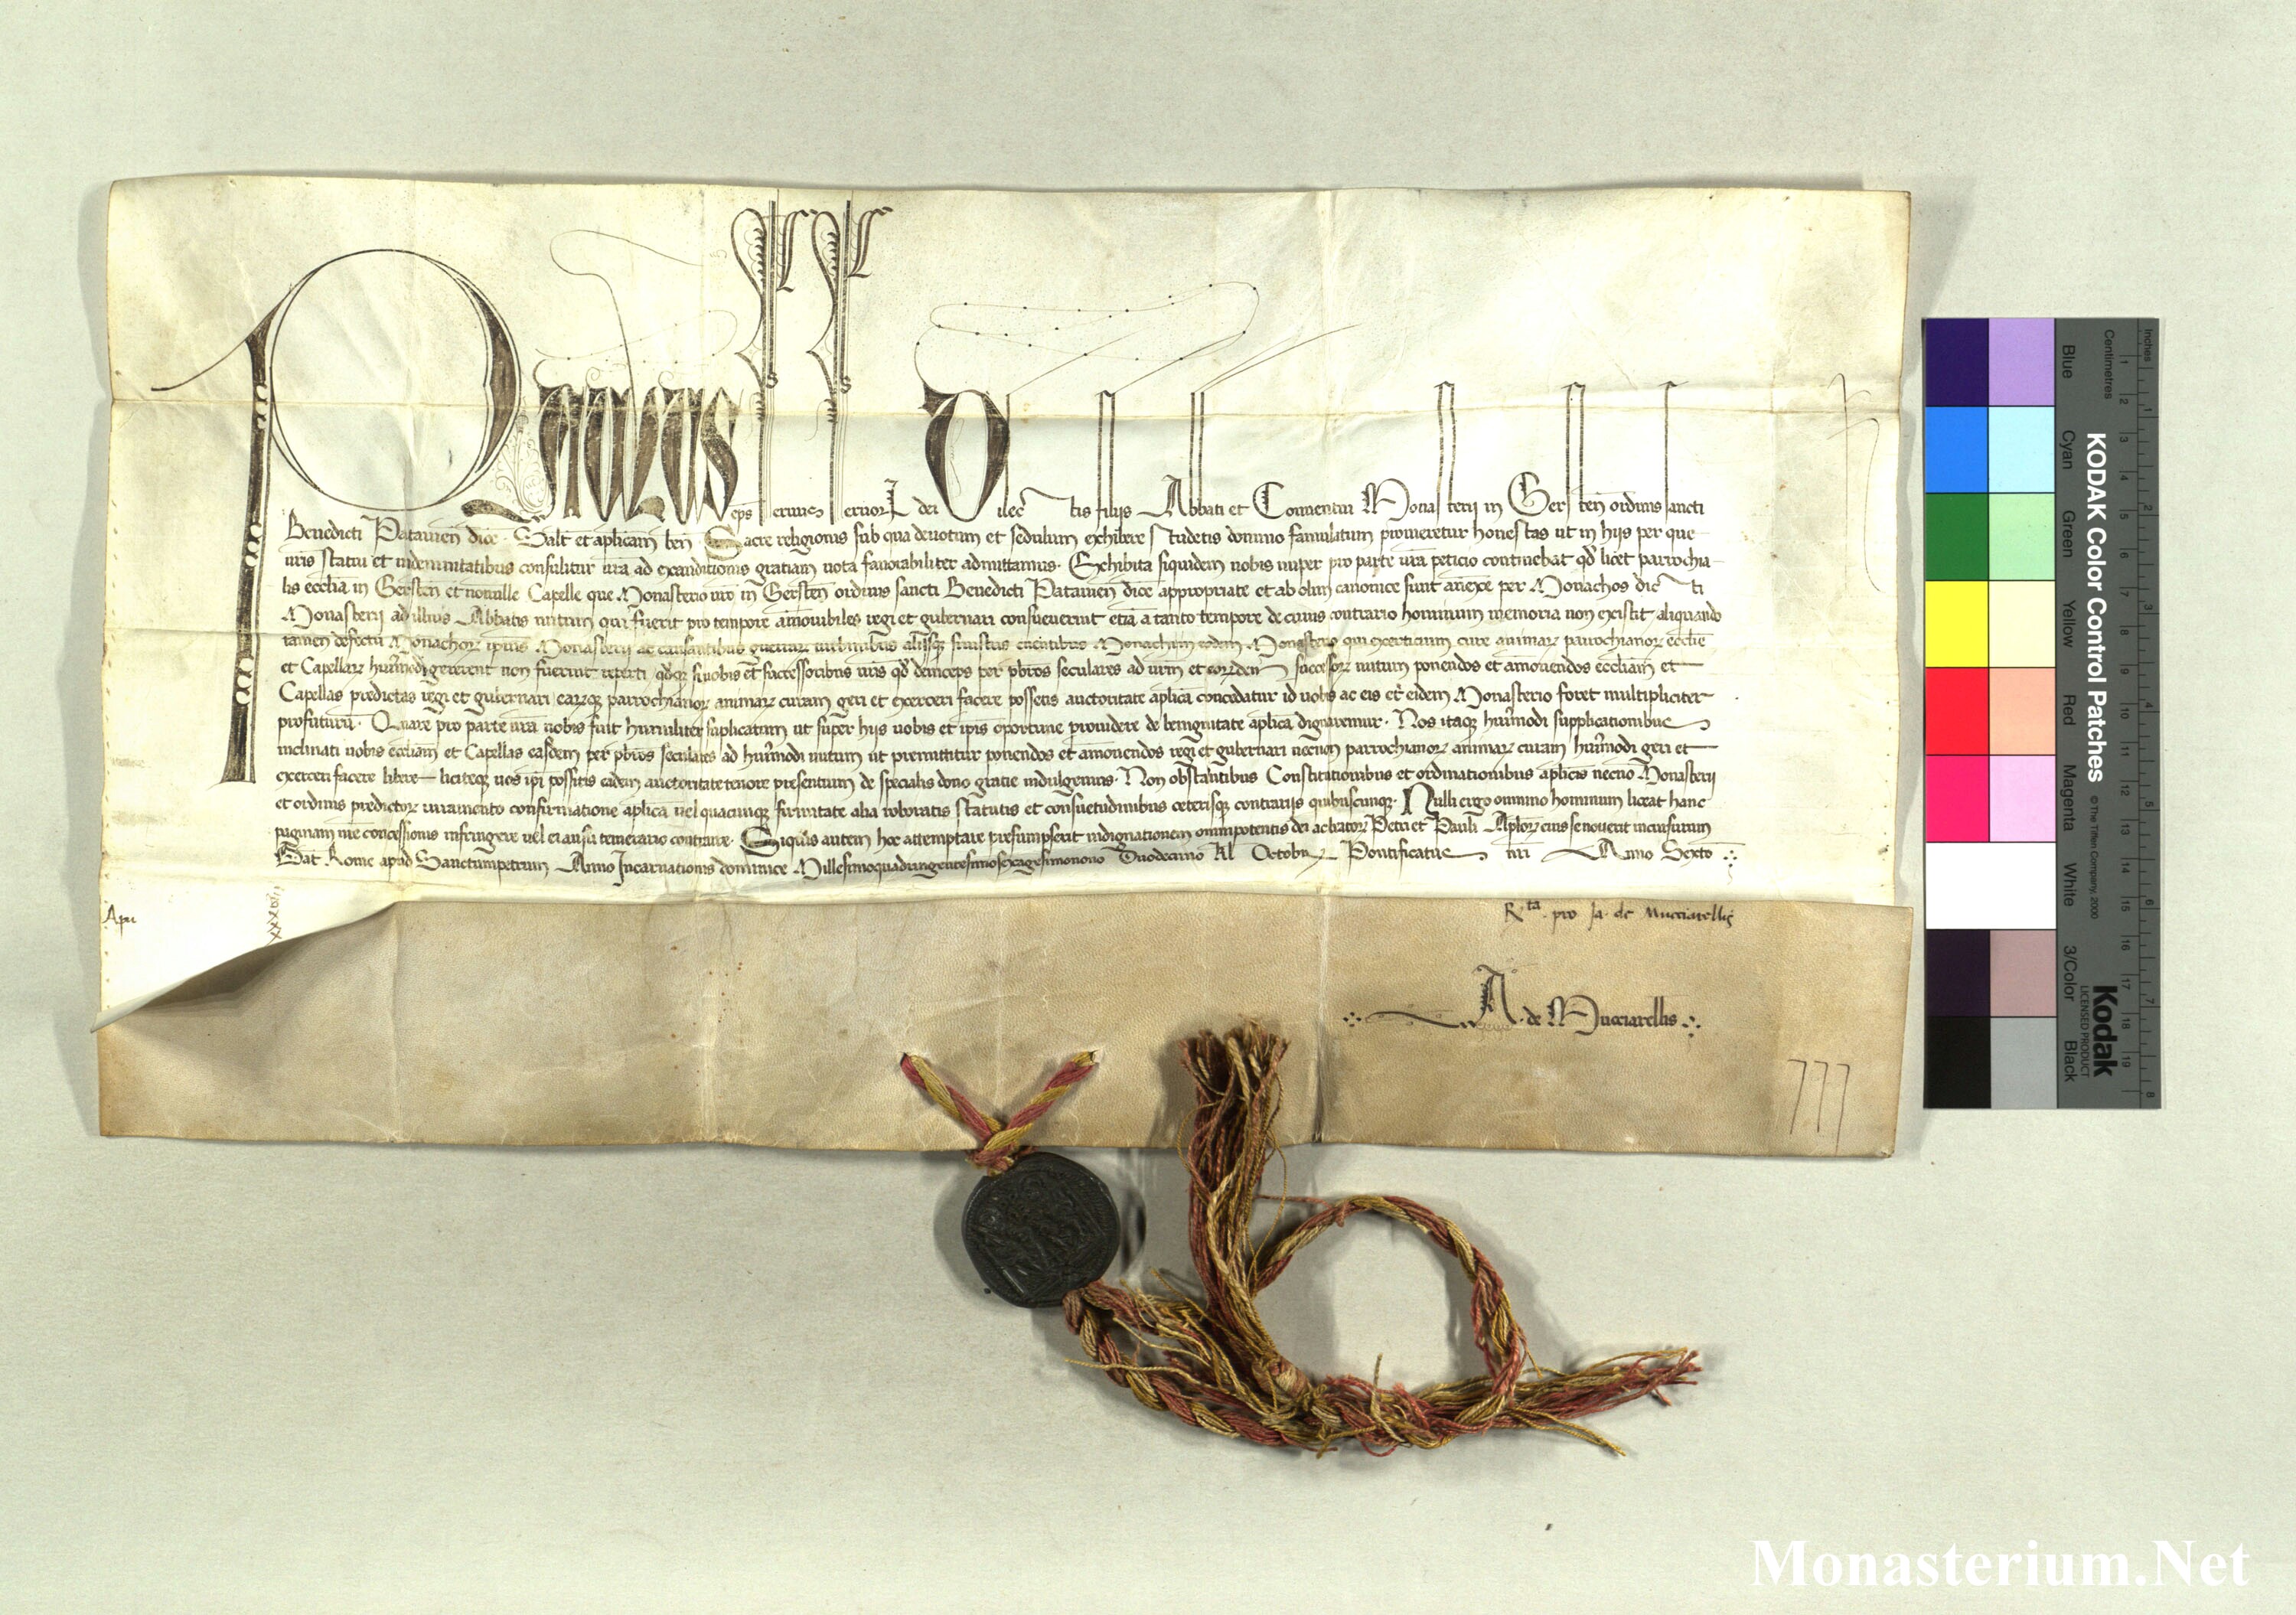 Paulus eps seruus seruorꝝ dei Dilectis filijs Abbati et Conuentui Monasterij in Gersten ordinis sancti
Benedicti Patauien̄ dioc̄ · Salt̄ et apl̄icam ben̄ · Sacre religionis sub qua deuotum et sedulum exhibere studetis domino famulatum promeretur honestas ut in hijs per que
uris̄ statui et indemnitatibus consulitur ura̅ ad exauditionis gratiam uota fauorabiliter admittamus · Exhibita siquidem nobis nuper pro parte ura̅ peticio continebat qd̄ licet parrochia-
lis eccl̄ia in Gersten̄ et nonnulle Capelle que Monasterio uro̅ in Gersten̄ ordinis sancti Benedicti Patauien̄ dioc̄ appropriate et ab olim canonice sunt anexe per Monachos dicti
Monasterij ad illius Abbatis nutum qui fuerit pro tempore amouibiles regi et gubernari consueuerint etia̅ a tanto tempore de cuius contrario hominum memoria non existit aliquando
tamen defectu Monachoꝝ ipsius Monasterij ac causantibus guerraꝝ turbinibus alijsq̨ sinistris euentibus Monachi in eodem Monasterio qui exercitium cure animaꝝ parrochianoꝝ eccl̄ie
et Capellaꝝ hum̄oi gererent non fuerint reperti qd̄q̨ si uobis et successoribus uris̄ qd̄ deinceps per pb̄ros seculares ad urm̅ et eorunden̄ successoꝝ nutum ponendos et amouendos eccl̄iam et
Capellas predictas regi et gubernari eaꝝq̨ parrochianoꝝ animaꝝ curam geri et exerceri facere possetis auctoritate apl̄ica concedatur id uobis ac eis et eidem Monasterio foret multipliciter
profuturū · Quare pro parte ura̅ nobis fuit humiliter suplicatum ut super hijs uobis et ipis̄ oportune prouidere de benignitate apl̄ica dignaremur · Nos itaq̨ hum̄oi supplicationibus
inclinati uobis eccl̄iam et Capellas easdem per pb̄ros seculares ad hum̄oi nutum ut premittitur ponendos et amouendos regi et gubernari necnon parrochianoꝝ animaꝝ curam hum̄oi geri et
exerceri facere libere liciteq̨ uos ipi̅ possitis eadem auctoritate tenore presentium de specialis dono gratie indulgemus · Non obstantibus Constitutionibus et ordinationibus apl̄icis necnō Monasterij
et ordinis predictoꝝ iuramento confirmatione apl̄ica uel quacunq̨ firmitate alia roboratis statutis et consuetudinibus ceterisq̨ contrarijs quibuscunq̨ · Nulli ergo omnino hominum liceat hanc
paginam nre̅ concessionis infringere uel ei ausu temerario contraire · Siquis autem hoc attemptare presumpserit indignationem omnipotentis dei ac beatoꝝ Petri et Pauli Apl̄oꝝ eius se nouerit incursurum
Dat̄ Rome apud Sanctumpetrum Anno Incarnationis dominice Millesimoquadringentesimosexagesimonono Duodecimo kl̄ Octobrꝭ Pontificatus nri̅ Anno Sexto
Apu
xxxviij
Rta · pro Ja · de Mucciarellis
A · de Mucciarellis
777
KODAK Color Control Patches
© The Tiffen Company, 2000
Kodak
LICENSED PRODUCT
Blue Cyan Green Yellow Red Magenta White 3/Color Black
Inches 1 2 3 4 5 6 7 8
Centimetres 1 2 3 4 5 6 7 8 9 10 11 12 13 14 15 16 17 18 19
Monasterium.Net